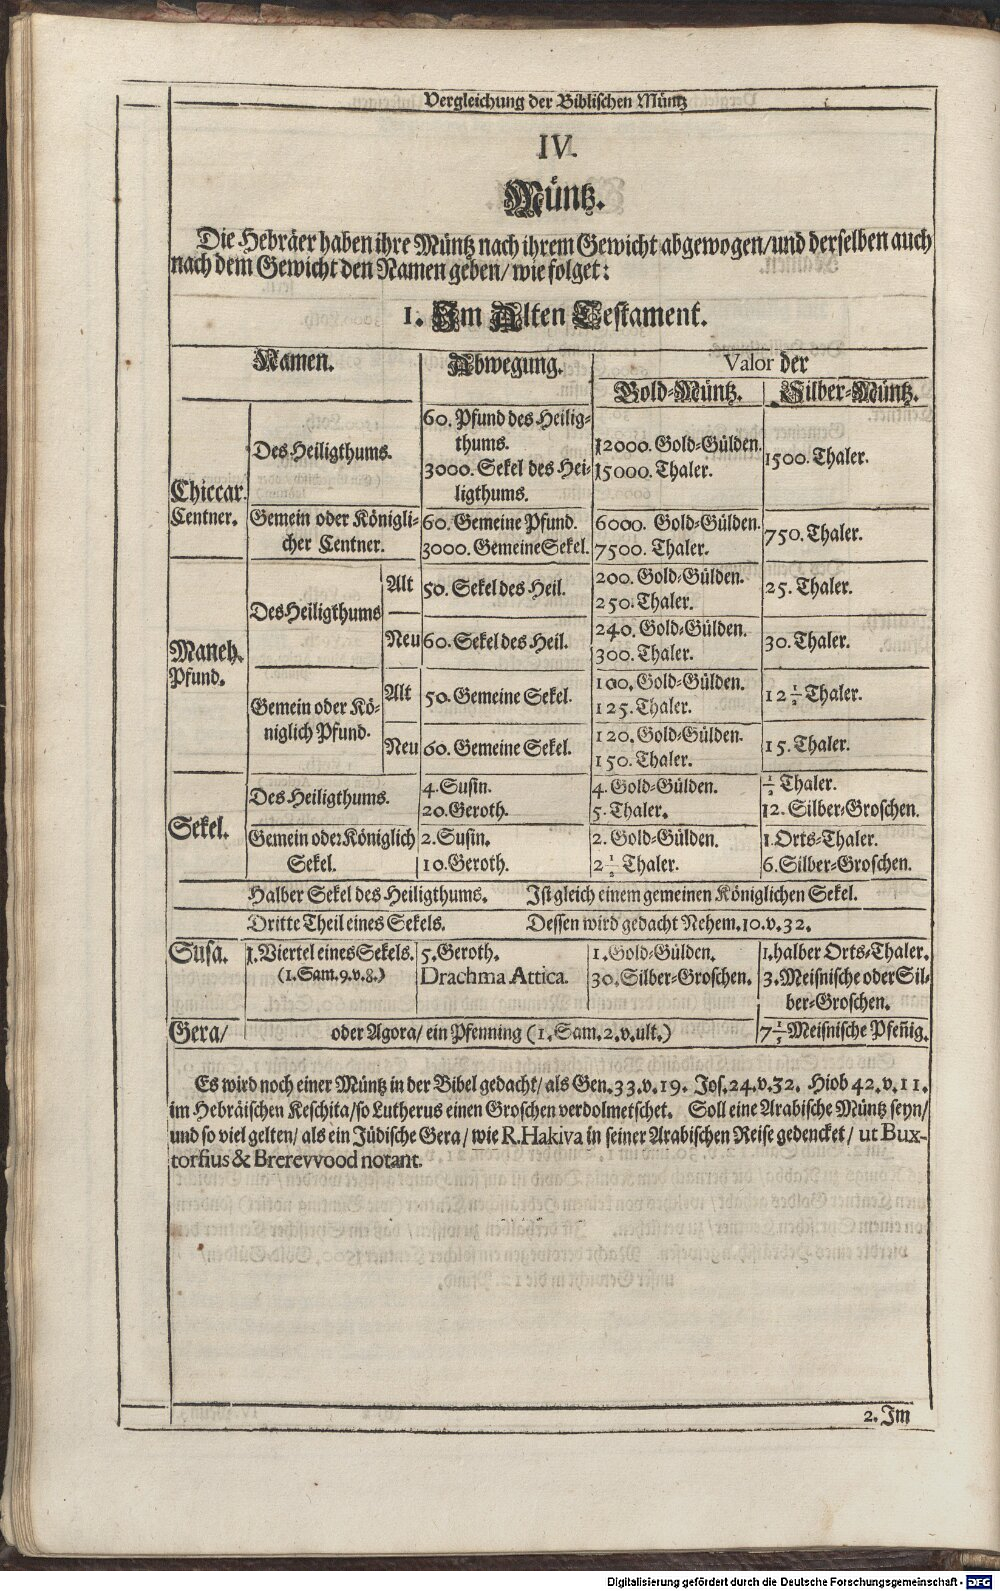 Vergleichung der Biblischen Müntz
IV.
Müntz.
Die Hebräer haben ihre Müntz nach ihrem Gewicht abgewogen/und derselben auch
nach dem Gewicht den Namen geben/ wie folget:
1. Im Alten Testament.
Namen. Abwegung. Valor der
Gold-Müntz. Silber-Müntz.
Chiccar.
Centner.
Des Heiligthums.
60. Pfund des Heilig-
thums.
3000. Sekel des Hei-
ligthums.
12000. Gold-Gülden.
15000. Thaler.
1500. Thaler.
Gemein oder Königli-
cher Centner.
60. Gemeine Pfund.
3000. Gemeine Sekel.
6000. Gold-Gülden.
7500. Thaler.
750. Thaler.
Maneh.
Pfund.
Des Heiligthums
Alt
50. Sekel des Heil.
200. Gold-Gülden.
250. Thaler.
25. Thaler.
Neu
60. Sekel des Heil.
240. Gold-Gülden.
300. Thaler.
30. Thaler.
Gemein oder Kö-
niglich Pfund.
Alt
50. Gemeine Sekel.
100. Gold-Gülden.
125. Thaler.
12 1/2 Thaler.
Neu
60. Gemeine Sekel.
120. Gold-Gülden.
150. Thaler.
15. Thaler.
Sekel.
Des Heiligthums.
4. Susin.
20. Geroth.
4. Gold-Gülden.
5. Thaler.
1/2 Thaler.
12. Silber-Groschen.
Gemein oder Königlich
Sekel.
2. Susin.
10. Geroth.
2. Gold-Gülden.
2 1/2 Thaler.
1. Orts-Thaler.
6. Silber-Groschen.
Halber Sekel des Heiligthums. Ist gleich einem gemeinen Königlichen Sekel.
Dritte Theil eines Sekels. Dessen wird gedacht Nehem. 10. v. 32.
Susa.
1. Viertel eines Sekels.
(1. Sam. 9. v. 8.)
5. Geroth.
Drachma Attica.
1. Gold-Gülden.
30. Silber-Groschen.
1. halber Orts-Thaler.
3. Meisnische oder Sil-
ber-Groschen.
Gera/ oder Agora/ ein Pfenning (1. Sam. 2. v. ult.) 7 1/5 Meisnische Pfeñig.
Es wird noch einer Müntz in der Bibel gedacht/ als Gen. 33. v. 19. Jos. 24. v. 32. Hiob 42. v. 11.
im Hebräischen Keschita/ so Lutherus einen Groschen verdolmetschet. Soll eine Arabische Müntz seyn/
und so viel gelten/ als ein Jüdische Gera/ wie R. Hakiva in seiner Arabischen Reise gedencket/ ut Bux-
torfius & Brerevvood notant.
2. Im
Digitalisierung gefördert durch die Deutsche Forschungsgemeinschaft - DFG